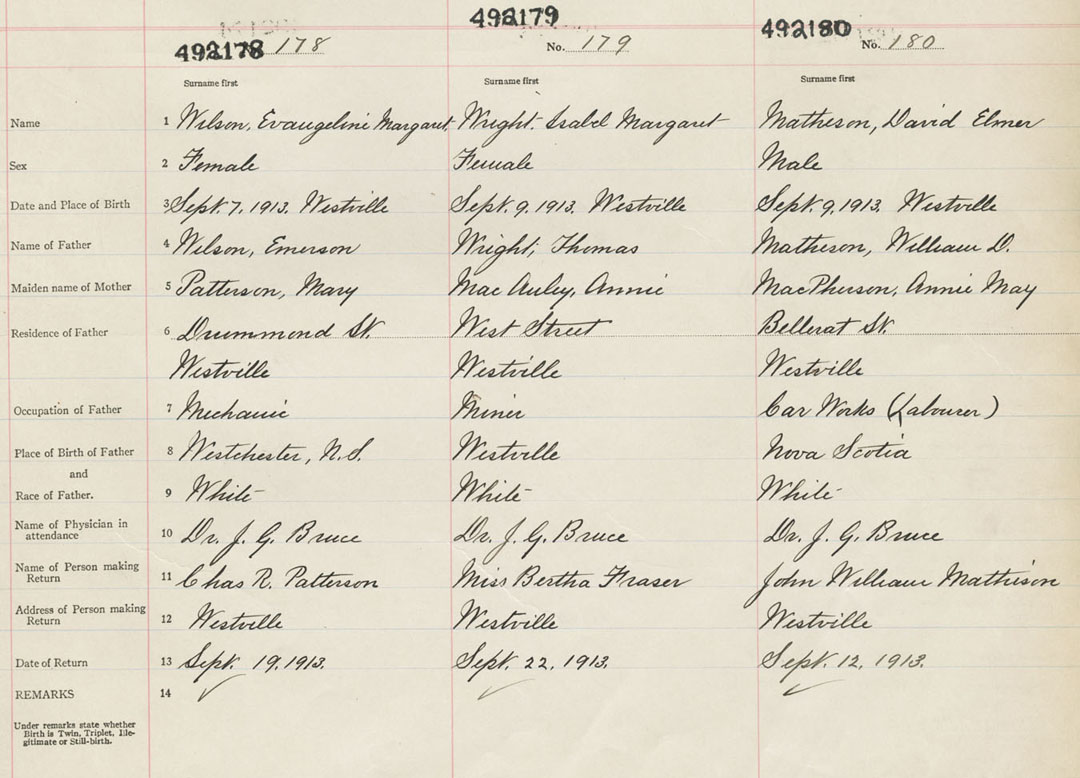 492178 178 492179 No. 179 492180 No. 180
Surname first Surname first Surname first
Name 1 Wilson, Evangeline Margaret. Wright. Isabel Margaret Matheson, David Elmer
Sex 2 Female Female Male
Date and Place of Birth 3 Sept. 7, 1913. Westville Sept. 9, 1913. Westville Sept. 9, 1913. Westville
Name of Father 4 Wilson, Emerson Wright, Thomas Matheson, William D.
Maiden name of Mother 5 Patterson, Mary MacAuley, Annie MacPherson, Annie May
Residence of Father 6 Drummond St. West Street Bellerat St.
Westville Westville Westville
Occupation of Father 7 Mechanic Miner Car Works (Labourer)
Place of Birth of Father 8 Westchester, N.S. Westville Nova Scotia
and
Race of Father. 9 White White White
Name of Physician in
attendance 10 Dr. J. G. Bruce Dr. J. G. Bruce Dr. J. G. Bruce
Name of Person making
Return 11 Chas R. Patterson Miss Bertha Fraser John William Matheson
Address of Person making
Return 12 Westville Westville Westville
Date of Return 13 Sept. 19, 1913. Sept. 22, 1913. Sept. 12, 1913.
REMARKS 14
Under remarks state whether
Birth is Twin, Triplet, Ille-
gitimate or Still-birth.